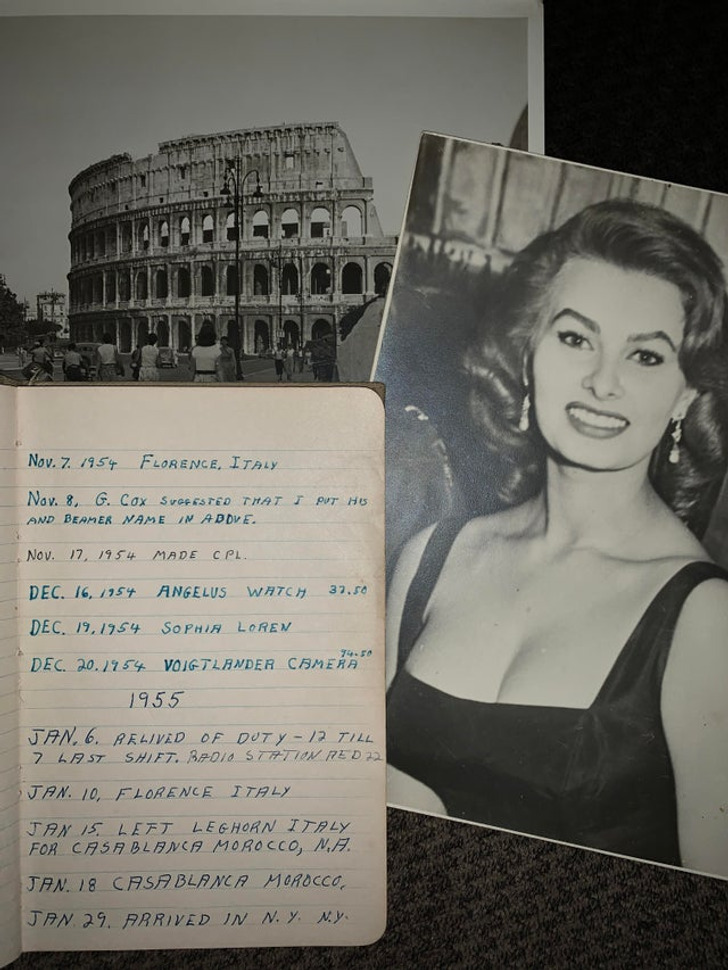 NOV. 7. 1954 FLORENCE, ITALY
NOV. 8, G. COX SUGGESTED THAT I PUT HIS
AND BEAMER NAME IN ADDVE.
NOV. 17, 1954 MADE CPL.
DEC. 16, 1954 ANGELUS WATCH 37.50
DEC. 19, 1954 SOPHIA LOREN
94.50
DEC. 20. 1954 VOIGTLANDER CAMERA
1955
JAN. 6. RELIVED OF DUTY - 12 TILL
7 LAST SHIFT. RADIO STATION RED 22
JAN. 10, FLORENCE ITALY
JAN 15. LEFT LEGHORN ITALY
FOR CASABLANCA MOROCCO, N.A.
JAN. 18 CASABLANCA MOROCCO,
JAN. 29. ARRIVED IN N.Y. N.Y.